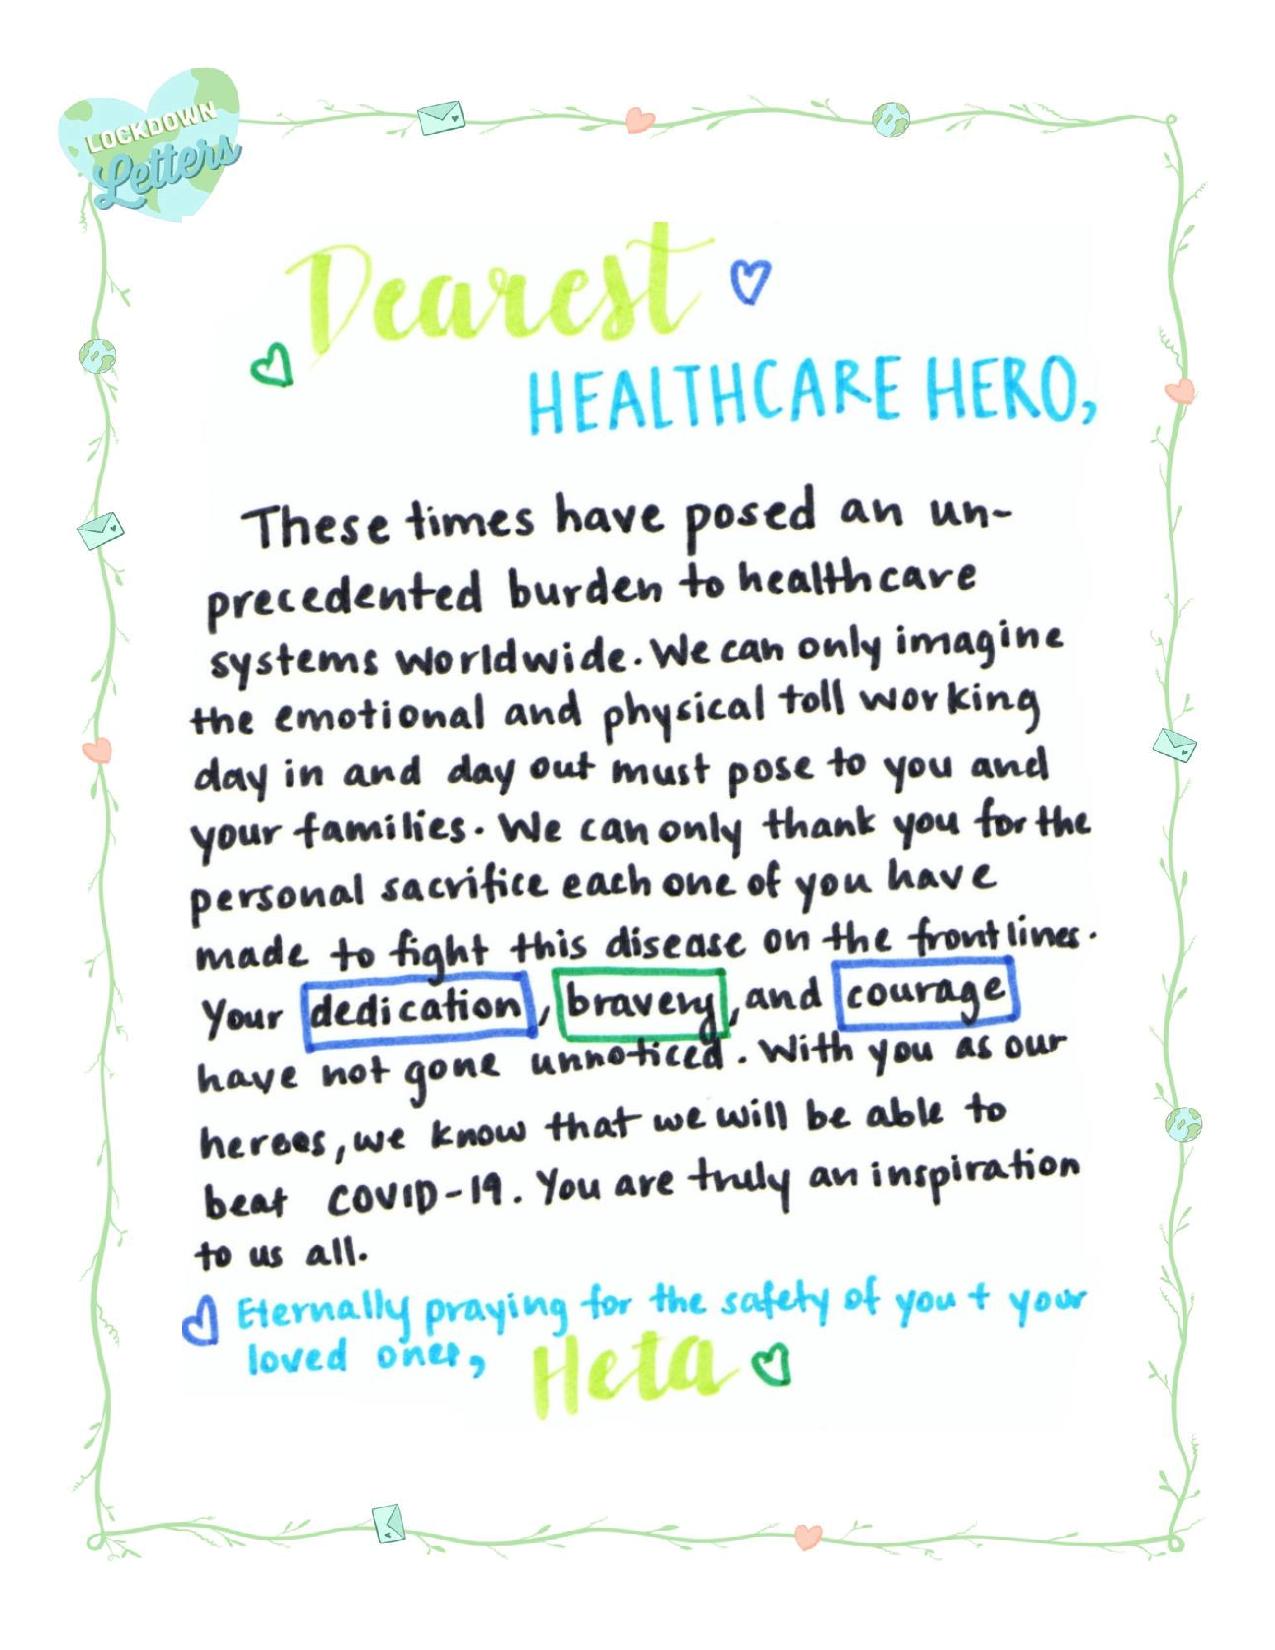 LOCKDOWN
Letters
Dearest
HEALTHCARE HERO,
These times have posed an un-
precedented burden to healthcare
systems worldwide. We can only imagine
the emotional and physical toll working
day in and day out must pose to you and
your families. We can only thank you for the
personal sacrifice each one of you have
made to fight this disease on the frontlines.
Your dedication, bravery, and courage
have not gone unnoticed. With you as our
heroes, we know that we will be able to
beat COVID-19. You are truly an inspiration
to us all.
Eternally praying for the safety of you + your
loved ones, Heta